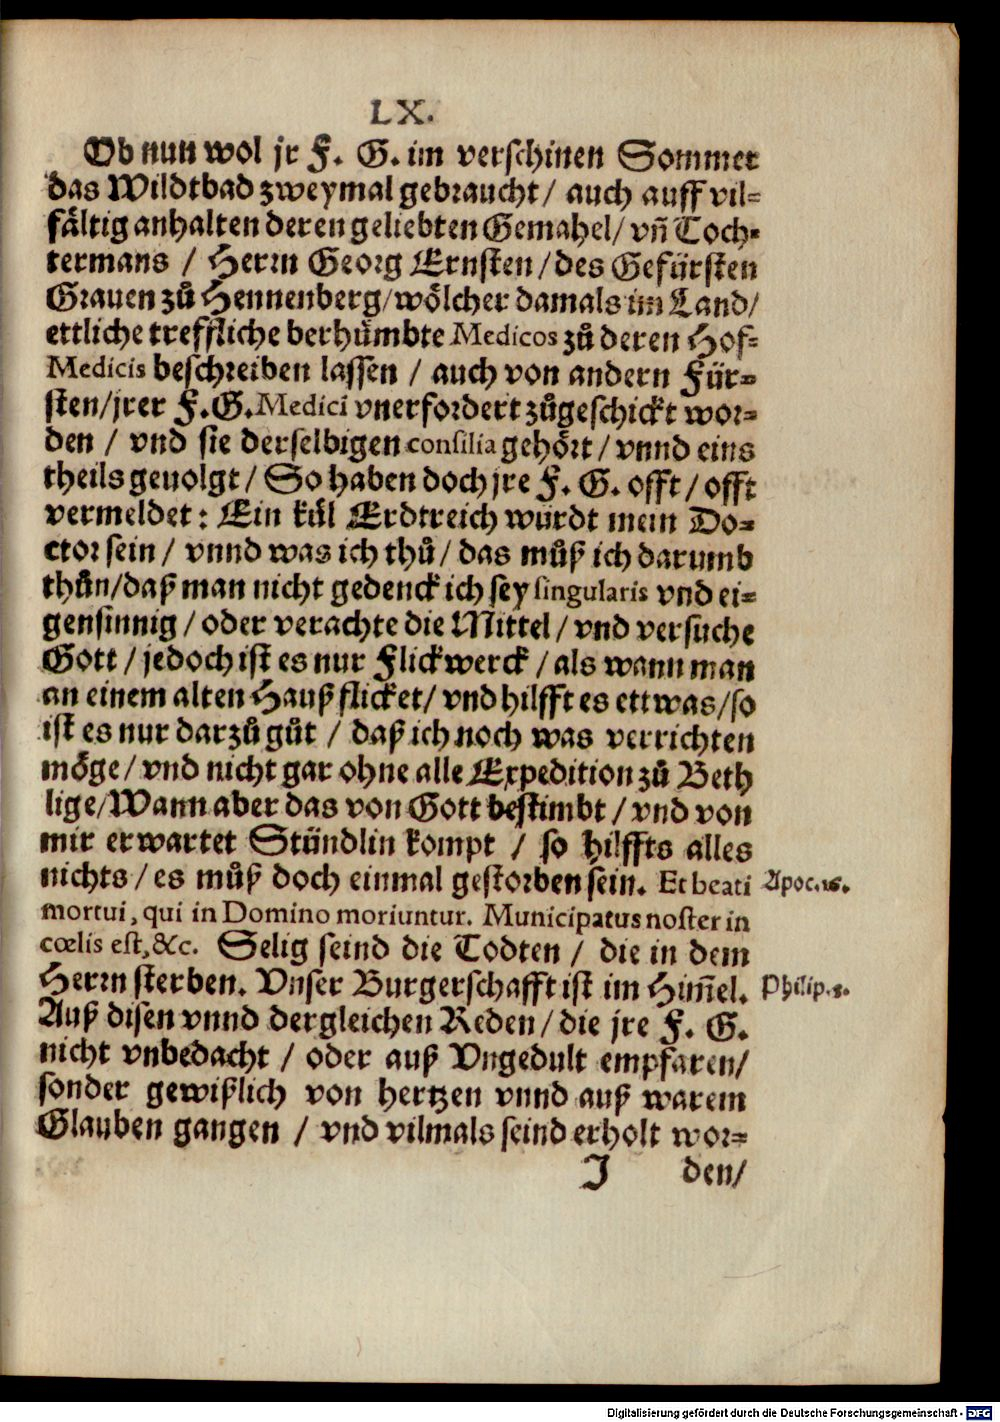 LX.
Ob nun wol jr F. G. im verschinen Sommer
das Wildtbad zweymal gebraucht/ auch auff vil-
fältig anhalten deren geliebten Gemahel/ vñ Toch-
termans / Herrn Georg Ernsten/des Gefürsten
Grauen zů Hennenberg/wölcher damals im Land/
ettliche treffliche berhümbte Medicos zů deren Hof-
Medicis beschreiben lassen / auch von andern Für-
sten/jrer F.G.Medici vnerfordert zůgeschickt wor-
den / vnd sie derselbigen consilia gehört/ vnnd eins
theils geuolgt/ So haben doch jre F. G. offt/ offt
vermeldet: Ein kül Erdtreich würdt mein Do-
ctor sein/ vnnd was ich thů/ das můß ich darumb
thůn/daß man nicht gedenck ich sey singularis vnd ei-
gensinnig/oder verachte die Mittel/vnd versuche
Gott/jedoch ist es nur Flickwerck/als wann man
an einem alten Hauß flicket/ vnd hilfft es ettwas/so
ist es nur darzů gůt / daß ich noch was verrichten
möge/vnd nicht gar ohne alle Expedition zů Beth
lige/Wann aber das von Gott bestimbt/vnd von
mir erwartet Stündlin kompt / so hilffts alles
nichts/es můß doch einmal gestorben sein. Et beati
mortui, qui in Domino moriuntur. Municipatus noster in
cœlis est, &c. Selig seind die Todten/ die in dem
Herrn sterben. Vnser Burgerschafft ist im Him̃el.
Auß disen vnnd dergleichen Reden/die jre F. G.
nicht vnbedacht / oder auß Vngedult empfaren/
sonder gewißlich von hertzen vnnd auß warem
Glauben gangen / vnd vilmals seind erholt wor-
J den/
Apoc.
Philip.3.
Digitalisierung gefördert durch die Deutsche Forschungsgemeinschaft - DFG